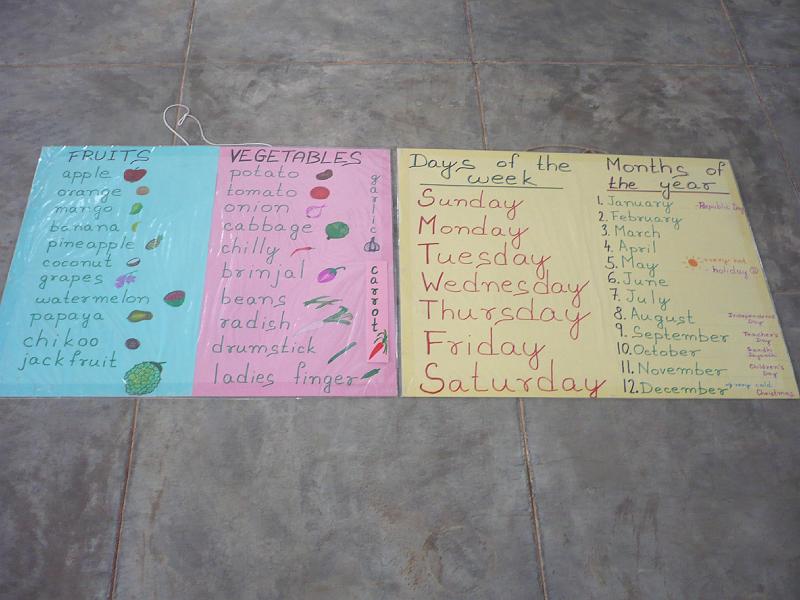 FRUITS
apple
orange
mango
banana
pineapple
coconut
grapes
watermelon
papaya
chikoo
jackfruit
VEGETABLES
potato
tomato
onion
cabbage
chilly
brinjal
beans
radish
drumstick
ladies finger
garlic
carrot
Days of the
week
Sunday
Monday
Tuesday
Wednesday
Thursday
Friday
Saturday
Months of
the year
1. January - Republic Day
2. February
3. March
4. April
5. May very hot
- holiday
6. June
7. July
8. August Independence
Day
9. September Teacher's
Day
10. October Gandhi
Jayanti
11. November Children's
Day
12. December very cold
Christmas